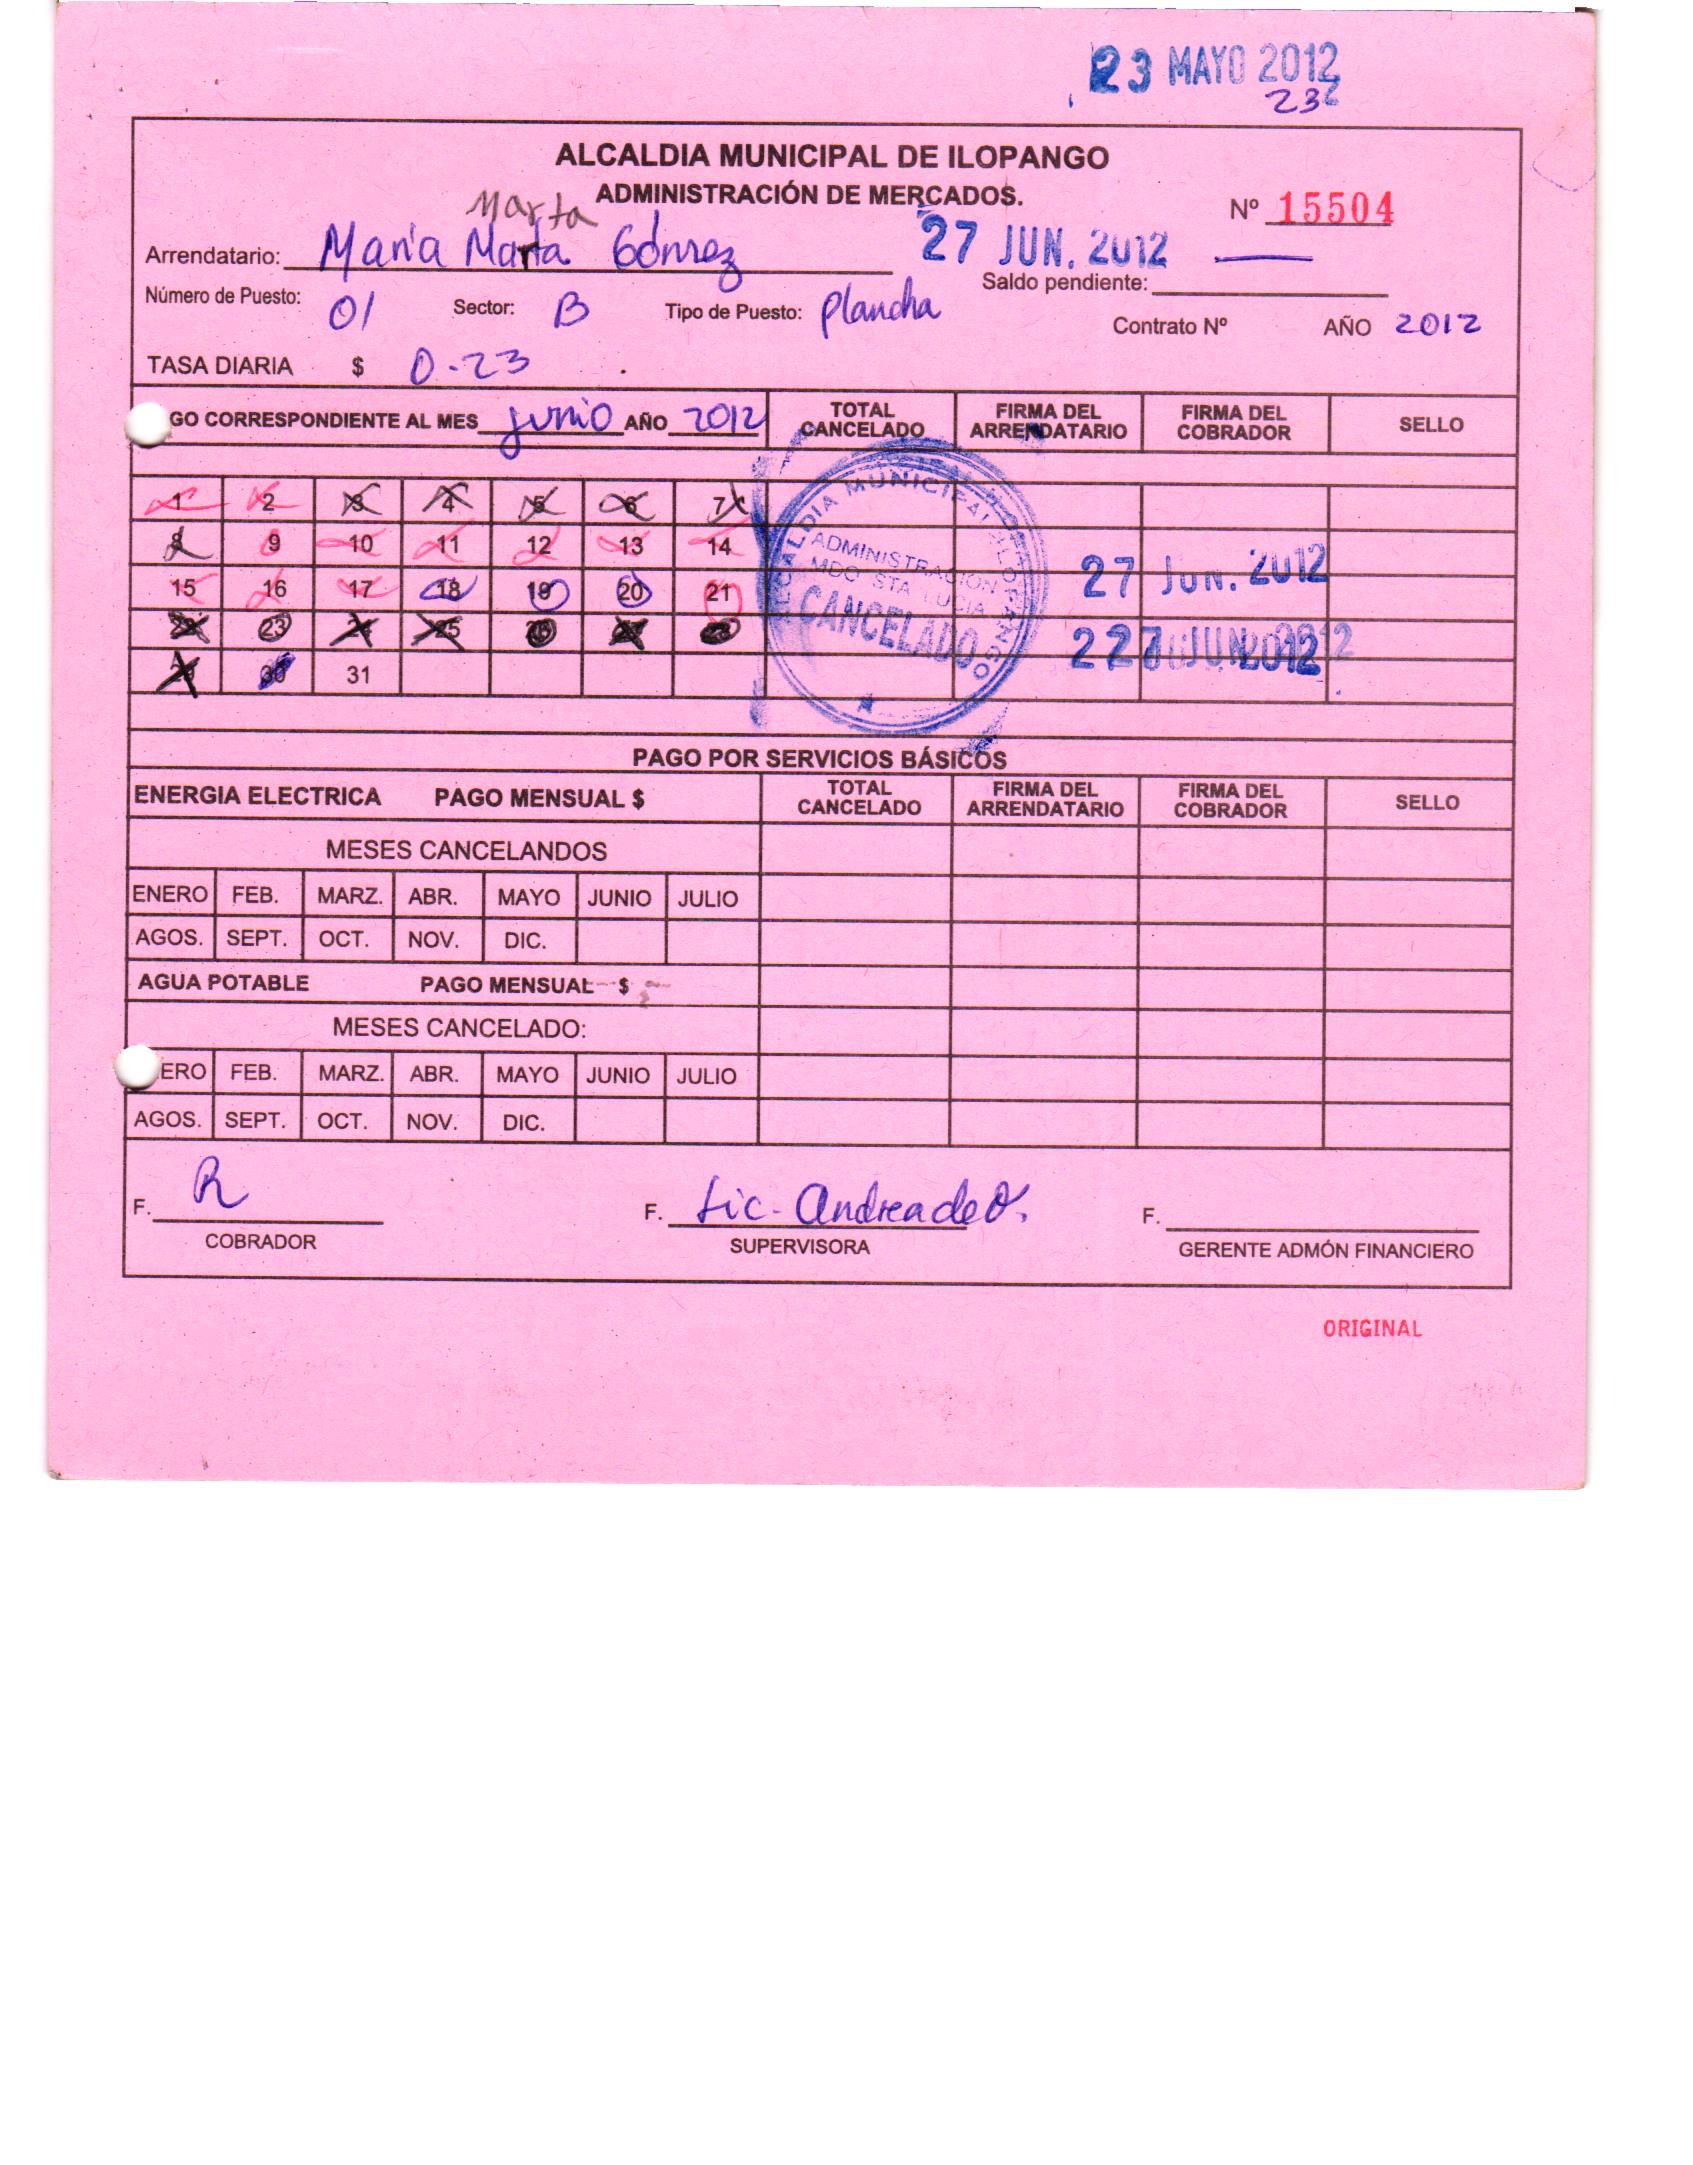 23 MAYO 2012
23
ALCALDIA MUNICIPAL DE ILOPANGO
ADMINISTRACIÓN DE MERCADOS.
Nº 15504
Marta
Arrendatario: María Marta Gómez
27 JUN. 2012
Saldo pendiente:
Número de Puesto: 01 Sector: B Tipo de Puesto: plancha
Contrato Nº AÑO 2012
TASA DIARIA $ 0.23
GO CORRESPONDIENTE AL MES junio AÑO 2012 TOTAL CANCELADO FIRMA DEL ARRENDATARIO FIRMA DEL COBRADOR SELLO
1 2 3 4 5 6 7
8 9 10 11 12 13 14
15 16 17 18 19 20 21
23
30 31
ALCALDIA MUNICIPAL ILOPANGO
ADMINISTRACION
MDO STA LUCIA
CANCELADO
27 JUN. 2012
PAGO POR SERVICIOS BÁSICOS
ENERGIA ELECTRICA PAGO MENSUAL $ TOTAL CANCELADO FIRMA DEL ARRENDATARIO FIRMA DEL COBRADOR SELLO
MESES CANCELANDOS
ENERO FEB. MARZ. ABR. MAYO JUNIO JULIO
AGOS. SEPT. OCT. NOV. DIC.
AGUA POTABLE PAGO MENSUAL $
MESES CANCELADO:
ERO FEB. MARZ. ABR. MAYO JUNIO JULIO
AGOS. SEPT. OCT. NOV. DIC.
F. R
F. Lic. Andrea de O.
F.
COBRADOR
SUPERVISORA
GERENTE ADMÓN FINANCIERO
ORIGINAL